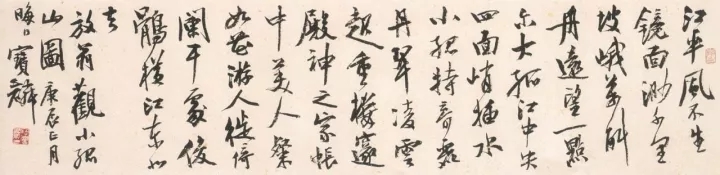 江平風不生
鏡面渺千里
峨萬斛
舟遠望一點
尔大孤江中央
四面峭插水
小孤特奇麗
丹翠凌雲
起重樓邃
殿神之家帳
中美人粲
如花游人徙倚
闌干處俊
鶻橫江東北
去
放翁觀小孤
山圖 庚辰正月
晦日寶麟